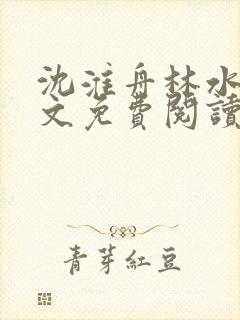 沈淮舟林水
文免費閱讀
青芽紅豆